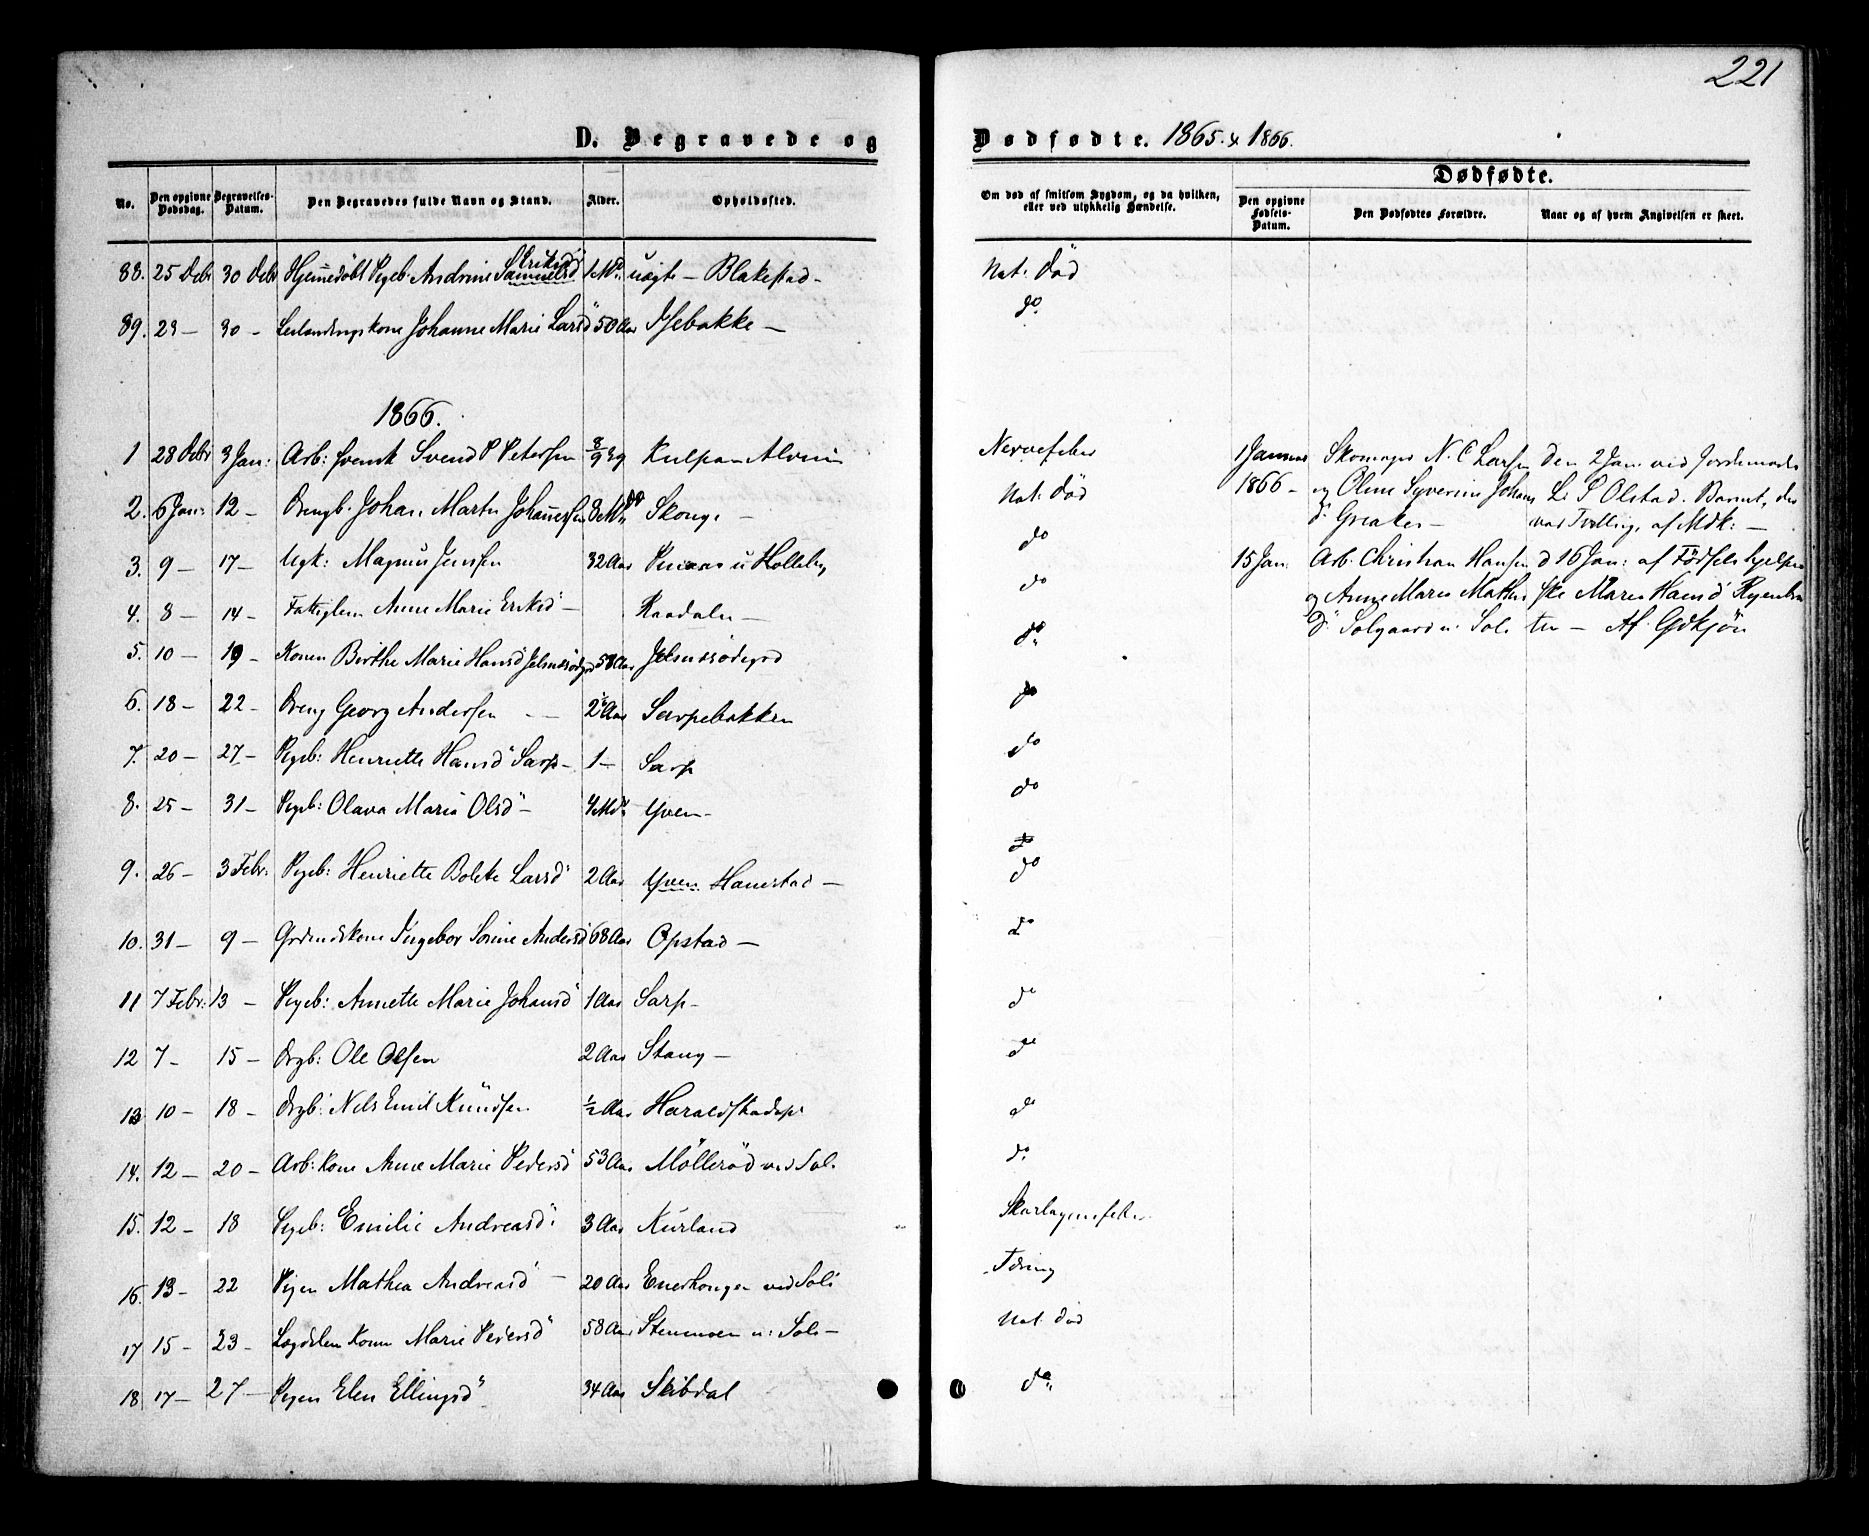 221
D. Begravede og Dødfødte. 1865 & 1866.
Dødfødte.
No. Den opgivne Dødsdag. Begravelses-Datum. Den Begravedes fulde Navn og Stand. Alder. Opholdssted. Om død af smitsom Sygdom, og da hvilken, eller ved ulykkelig Hændelse. Den opgivne Fødsels-Datum. Den Dødfødtes Forældre. Naar og af hvem Angivelsen er skeet.
88. 25 Debr 30 Debr Hjemmedöbt Pigeb. Andrine Samuelsd Eriksd 1 Md. uægte – Blakestad – Nat. Död
89. 23 – 30 – Johanne Marie Larsd 50 Aar Isebakke – do
1866.
1 28 Debr 3 Jan: Arb: svensk Svend P Petersen 39 Kulpan Alvim Nervefeber
1 Januar 1866 – Skomager N. C. Larsen og Oline Syverine Johans d: Greaker – den 2 Jan ved Jordemoder L. S Olstad. Barnet, der var Tvilling, af Mdk: –
2. 6 Jan: 12 – Drengb. Johan Martin Johannesen 8 Md. Skonge – Nat. Död
3. 9 – 17 – Ugk: Magnus Jenssen 32 Aar u Holleby do
15 Jan: Arb. Christian Hansen og Anne Marie Mathis d: Solgaard u. Soli d 16 Jan: af Födselshjelperske Maren Hansd – Af Qdkjön
4. 8 – 14 – Fattiglem Anne Marie Eriksd – Raadalen – do
5. 10 – 19 – Konen Berthe Marie Hansd 58 Aar do
6. 18 – 22 – Dreng Georg Andersen – 2 Aar Sarpebakken do
7. 20 – 27 – Pigeb: Henriette Hansd Sarp – 1 – Sarp do
8. 25 – 31 – Pigeb: Olava Marie Olsd – 4 Mdr Yven – do
9. 26 – 3 Febr: Pigeb: Henriette Bolette Larsd 2 Aar Yven Hanestad – do
10. 31 – 9 – Grdmdskone Ingebor Sörine Andersd 68 Aar Opstad – do
11 7 Febr: 13 – Pigeb: Annette Marie Johansd 1 Aar Sarp – do
12 7 – 15 – Drgb: Ole Olsen 2 Aar Stang – do
13 10 – 18 – Drgb: Nils Emil Knudsen ½ Aar Haraldstadspl do
14. 12 – 20 – Arb: Kone Anne Marie Pedersd 53 Aar Mölleröd ved Sol. do
15. 12 – 18 Pigeb: Emilie Andreasd: 3 Aar Kurland Skarlagensfeber
16. 13 – 22 Pigen Mathea Andreasd – 20 Aar Enerhougen ved Soli Tæring
17 15 – 23 – Lægdslem Konen Marie Pedersd 58 Aar Stenmoen u: Soli – Nat. död
18 17 – 27 – Pigen Elen Ellingsd 34 Aar Skibdal do